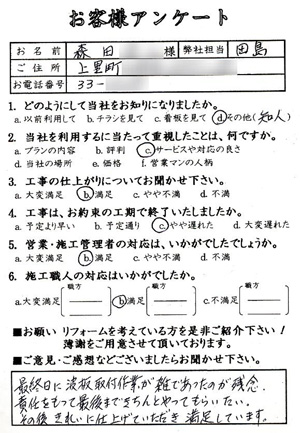 お客様アンケート
お名前 森田 様 弊社担当 田島
ご住所 上里町
お電話番号 33-
1. どのようにして当社をお知りになりましたか。
a.以前利用して b.チラシを見て c.看板を見て d.その他(知人)
2. 当社を利用するに当たって重視したことは、何ですか。
a.プランの内容 b.評判 c.サービスや対応の良さ
d.当社の場所 e.価格 f.営業マンの人柄
3. 工事の仕上がりについてお聞かせ下さい。
a.大変満足 b.満足 c.やや不満 d.不満
4. 工事は、お約束の工期で終了いたしましたか。
a.予定より早い b.予定通り c.やや遅れた d.大変遅れた
5. 営業・施工管理者の対応は、いかがでしたでしょうか。
a.大変満足 b.満足 c.やや不満 d.不満
6. 施工職人の対応はいかがでしたか。
a.大変満足 職方 b.満足 職方 c.不満足 職方
■お願い リフォームを考えている方を是非ご紹介下さい!
薄謝をご用意させて頂いております。
■ご意見・ご感想などございましたらお聞かせ下さい。
最終日に波板取付作業が雑であったのが残念.
責任をもって最後まできちんとやってもらいたい。
その後きれいに仕上げていただき満足しています。